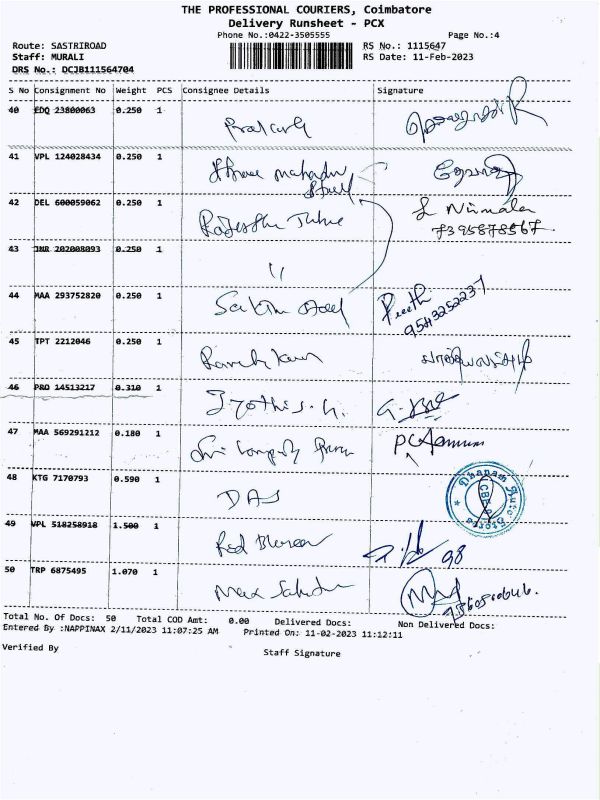 THE PROFESSIONAL COURIERS, Coimbatore
Delivery Runsheet - PCX
Phone No.:0422-3505555 Page No.:4
Route: SASTRIROAD RS No.: 1115647
Staff: MURALI RS Date: 11-Feb-2023
DRS No.: DCJB111564704
S No Consignment No Weight PCS Consignee Details Signature
40 EDQ 23800063 0.250 1 Prakash
41 VPL 124028434 0.250 1 Shree mahadev Steel
42 DEL 600059062 0.250 1 L Nirmala
7395878567
43 JNR 202008093 0.250 1 "
44 MAA 293752820 0.250 1 Preethi
9543252237
45 TPT 2212046 0.250 1
46 PRO 14513217 0.310 1 Jyothi S. G.
47 MAA 569291212 0.180 1 Sri
48 KTG 7170793 0.590 1 DAS
Dhanam Auto Stores
CBE
49 VPL 518258918 1.500 1 Red 98
50 TRP 6875495 1.070 1 Max
Total No. Of Docs: 50 Total COD Amt: 0.00 Delivered Docs: Non Delivered Docs:
Entered By :NAPPINAX 2/11/2023 11:07:25 AM Printed On: 11-02-2023 11:12:11
Verified By Staff Signature